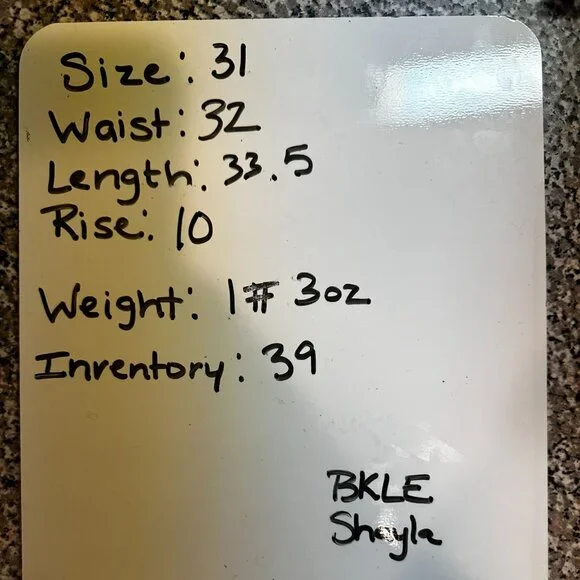 Size: 31
Waist: 32
Length: 33.5
Rise: 10
Weight: 1# 3oz
Inrentory: 39
BKLE
Shayla